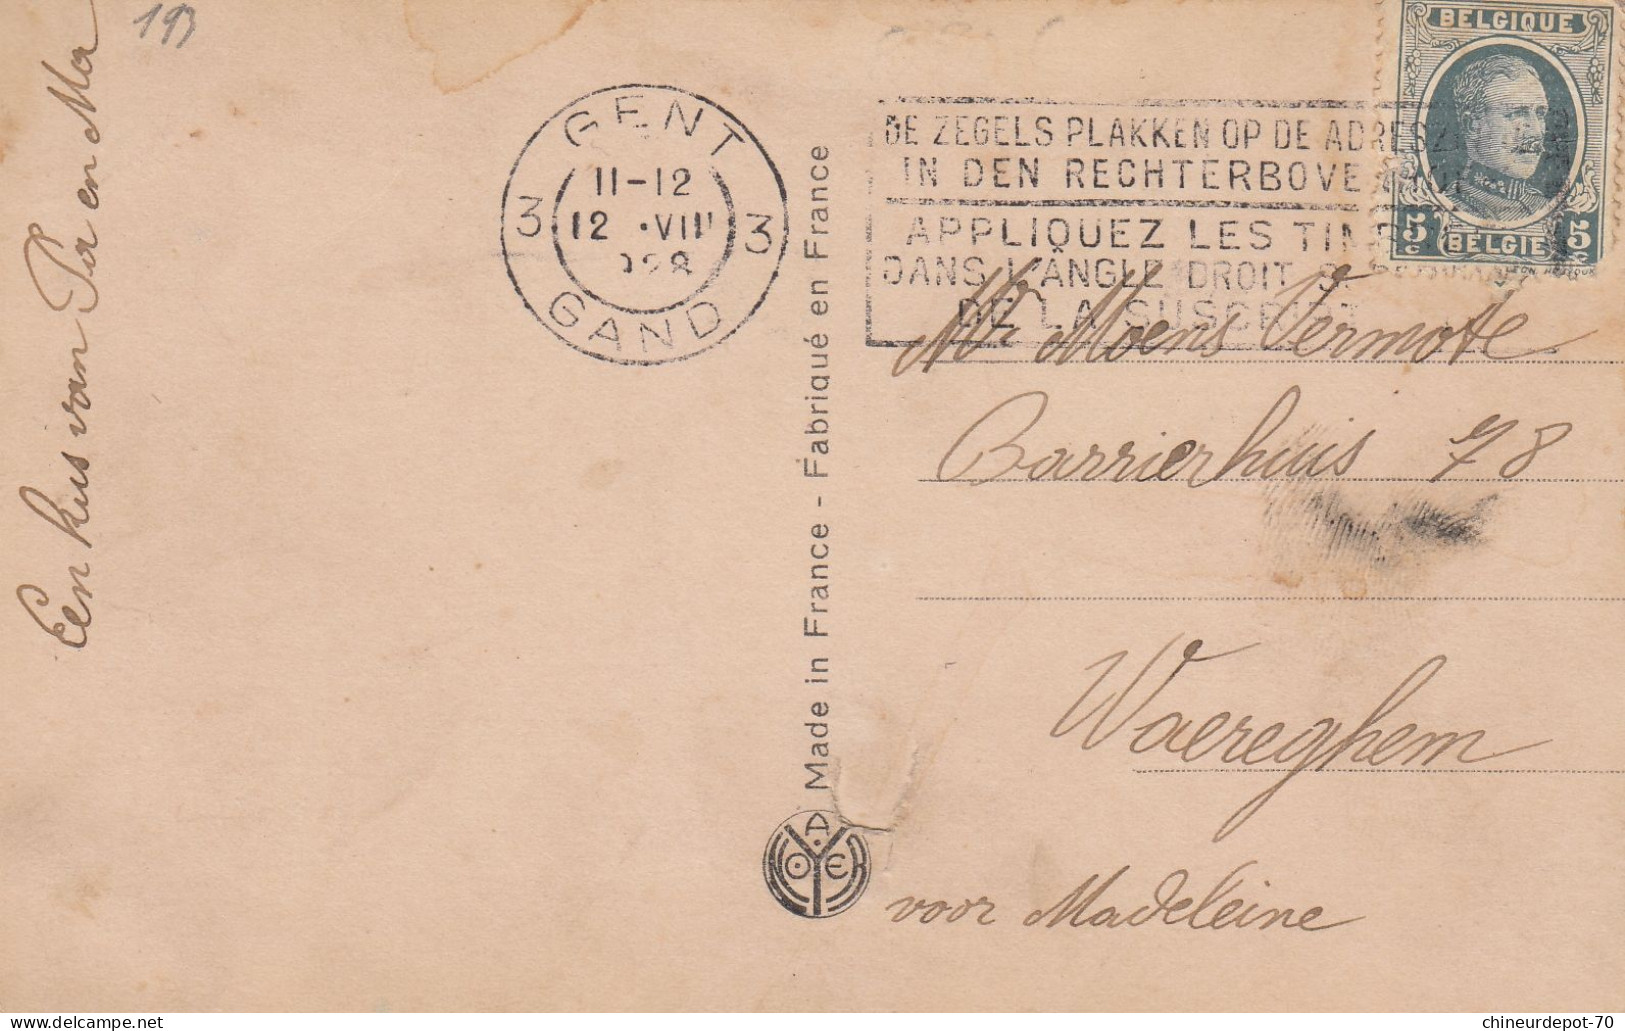 193
Een kus van Pa en Ma
GENT
11-12
12 ·VIII
928
3 3
GAND
DE ZEGELS PLAKKEN OP DE ADRESZ
IN DEN RECHTERBOVE
APPLIQUEZ LES TIMB
DANS L'ANGLE DROIT S
DE LA SUSCRIPT
BELGIQUE
5c BELGIË 5c
Made in France - Fabriqué en France
Mr Moens Vermote
Barrierhuis 78
Waereghem
voor Madeleine
delcampe.net
chineurdepot-70